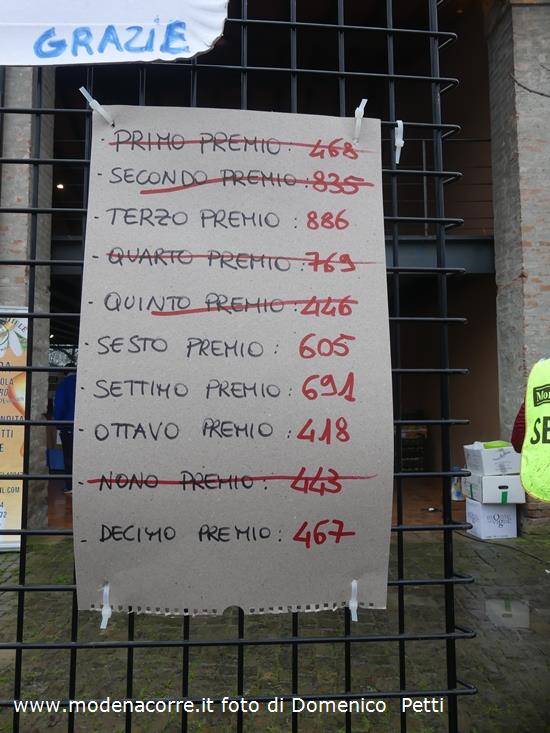 GRAZIE
- PRIMO PREMIO: 468
- SECONDO PREMIO: 835
- TERZO PREMIO: 886
- QUARTO PREMIO: 769
- QUINTO PREMIO: 446
- SESTO PREMIO: 605
- SETTIMO PREMIO: 691
- OTTAVO PREMIO: 418
- NONO PREMIO: 443
- DECIMO PREMIO: 467
www.modenacorre.it foto di Domenico Petti